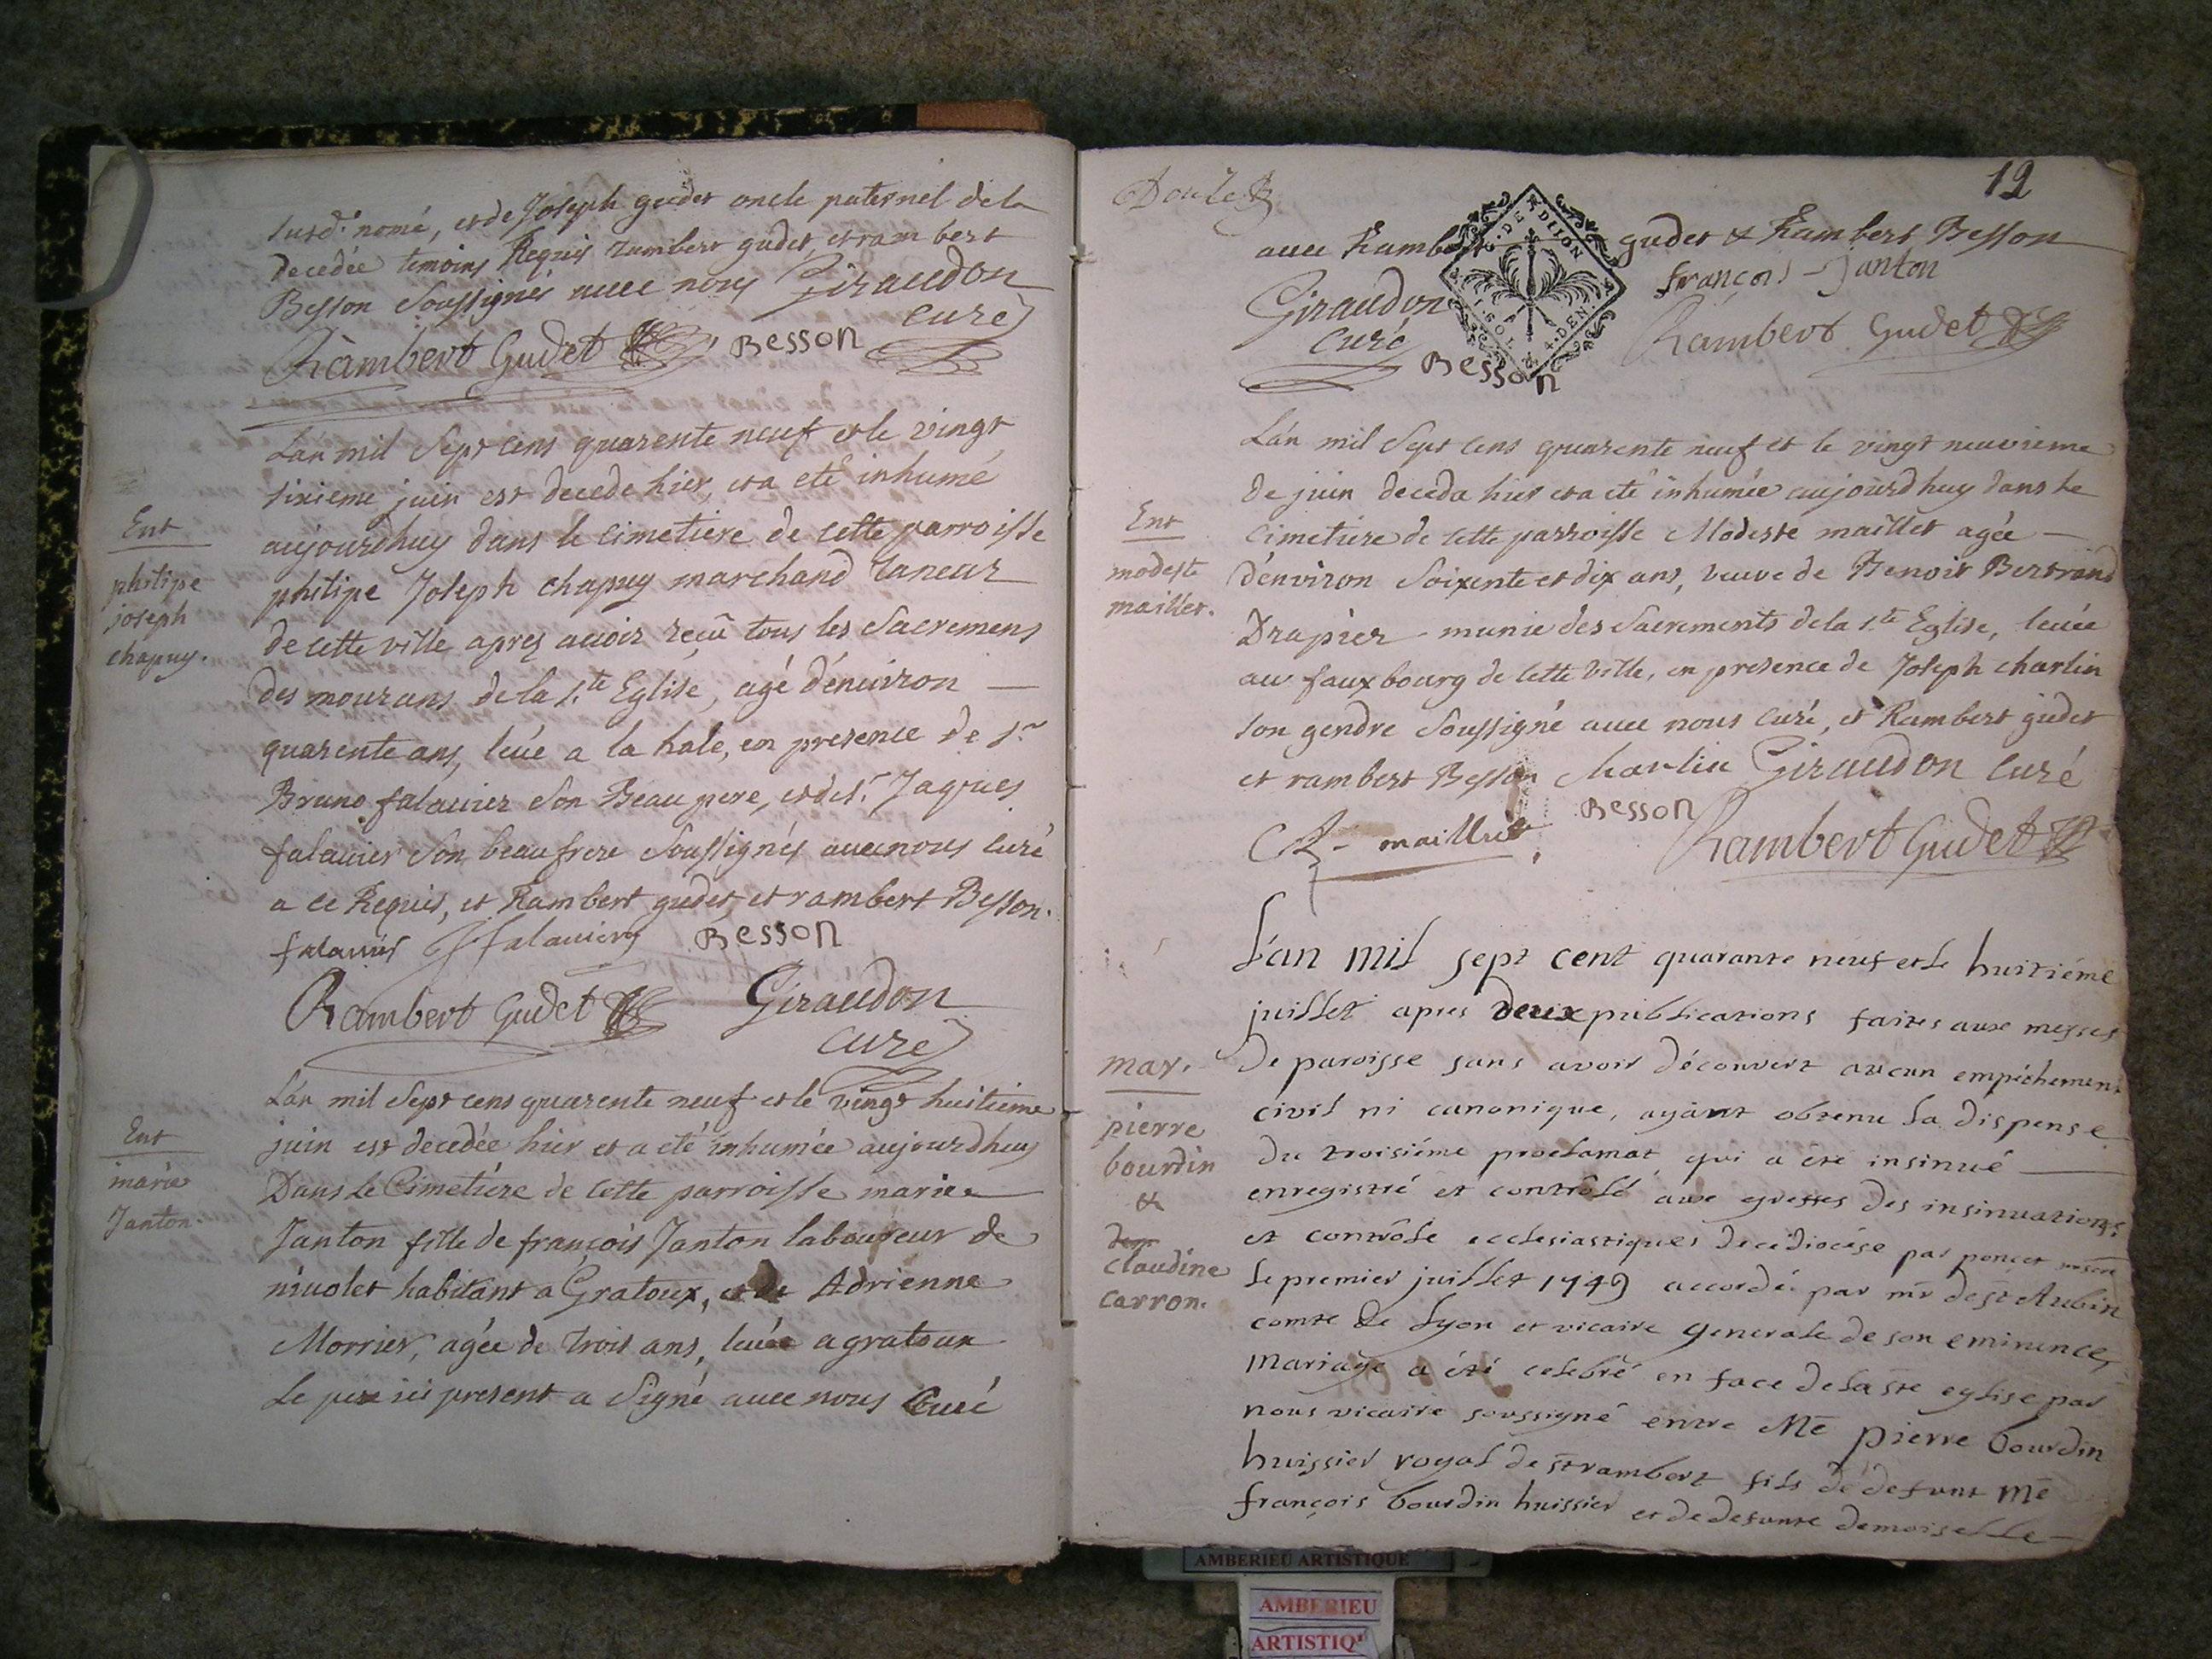 susd.t nomé, et de Joseph gudet oncle paternel de la
decedée temoins Requis rambert gudet, et rambert
Besson soussignés avec nous Giraudon
curé
Rambert Gudet Besson
Ent
philipe
joseph
chapuy.
L'an mil sept cens quarente neuf et le vingt
sixieme juin est decede hier, et a eté inhumé
aujourdhuy dans le cimetiere de cette parroisse
philipe Joseph chapuy marchand taneur
de cette ville apres avoir reçû tous les sacremens
des mourans de la s.te Eglise, agé d'environ —
quarente ans, levé a la hale, en presence de s.r
Bruno falavier son Beau pere, et de s.r Jaques
falavier son beau frere soussignés avec nous curé
a ce Requis, et Rambert gudet, et rambert Besson.
falavier falavier Besson
Rambert Gudet Giraudon
curé
Ent
marie
Janton.
L'an mil sept cens quarente neuf et le vingt huitieme
juin est decedée hier et a eté inhumée aujourdhuy
Dans le Cimetiere de cette parroisse marie
Janton fille de françois Janton laboureur de
nivolet habitant a Gratoux, et de Adrienne
Morrier, agée de trois ans, levée a gratoux
Le pere ici present a signé avec nous Curé
12
Douze
avec Rambert gudet & Rambert Besson
G. DE DIJON
françois Janton
Giraudon
curé
Besson
Rambert Gudet
Ent
modeste
maillet.
L'an mil sept cens quarente neuf et le vingt neuvieme
de juin deceda hier et a eté inhumée aujourdhuy dans le
cimetiere de cette parroisse Modeste maillet agée —
d'environ soixente et dix ans, veuve de Benoit Bertrand
Drapier - munie des sacrements de la s.te Eglise, levée
au fauxbourg de cette ville, en presence de Joseph charlin
son gendre soussigné avec nous curé, et Rambert gudet
et rambert Besson Charlin Giraudon curé
Besson
Rambert Gudet
mar.
pierre
bourdin
&
claudine
carron.
L'an mil sept cent quarante neuf et le huitiéme
juillet apres deux publications faites aux messes
de paroisse sans avoir découvert aucun empéchement
civil ni canonique, ayànt obtenu la dispense
du troisiéme proclamat qui a été insinué —
enregistré et contrôlé aux greffes des insinuations
et contrôle ecclesiastiques de ce diocése par poncet
le premier juillet 1749 accordée par mr de st Aubin
comte de Lyon et vicaire generale de son eminence,
mariage a été celebré en face de la ste eglise par
nous vicaire soussigné entre Me pierre bourdin
huissier royal de st rambert fils de defunt Me
françois bourdin huissier et de defunte demoiselle —
AMBERIEU ARTISTIQUE
AMBERIEU
ARTISTIQ